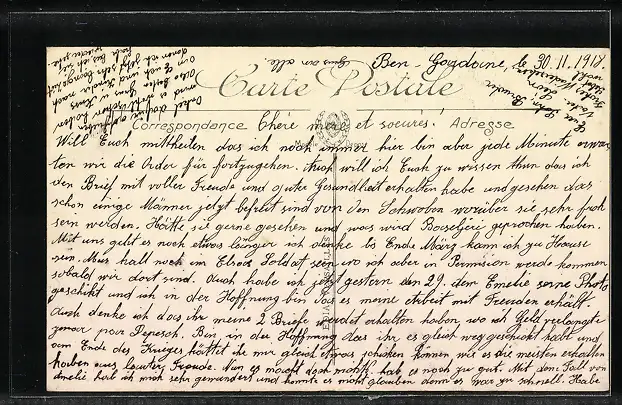 Gruss an alle
Ben-Gardane, le 30.11.1918.
Carte Postale
Correspondance Chère mère et soeures! Adresse
Will Euch mittheilen das ich noch immer hier bin aber jede Meinute erwar
ten wir die Order für fortzugehen. Auch will ich Euch zu wissen thun das ich
den Brief mit voller Freude und guter Gesundheit erhalten habe und gesehen das
schon einige Männer jetzt befreit sind von den Schwoben worüber sie sehr froh
sein werden. Hätte sie gerne gesehen und was wird gesprochen haben.
Mit uns geht es noch etwas länger ich denke bis Ende März kann ich zu Hause
sein. Mus halt noch im Elsas Soldat sein wo ich aber in Permission werde kommen
sobald wir dort sind. Auch habe ich jetzt gestern den 29. dem Emelie seine Photo
geschikt und ich in der Hoffnung bin das es meine Arbeit mit Freuden erhält.
Auch denke ich das ihr meine 2 Briefe werdet erhalten haben wo ich Geld verlangte
zwar par Depesch. Bin in der Hoffnung das ihr es gleich weg geschikt habt und
am Ende des Krieges hättet ihr mir gleich etwas schiken können wie es die meisten erhalten
haben aus lauter Freude. Nun es macht doch nichts hab es noch zu gut. Mit dem Fall von
Amelie hab ich mich sehr gewundert und konnte es nicht glauben denn es war zu schnell. Habe